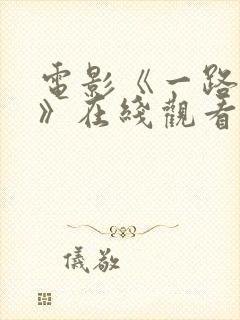 電影《一路
》在綫觀看
儀敬